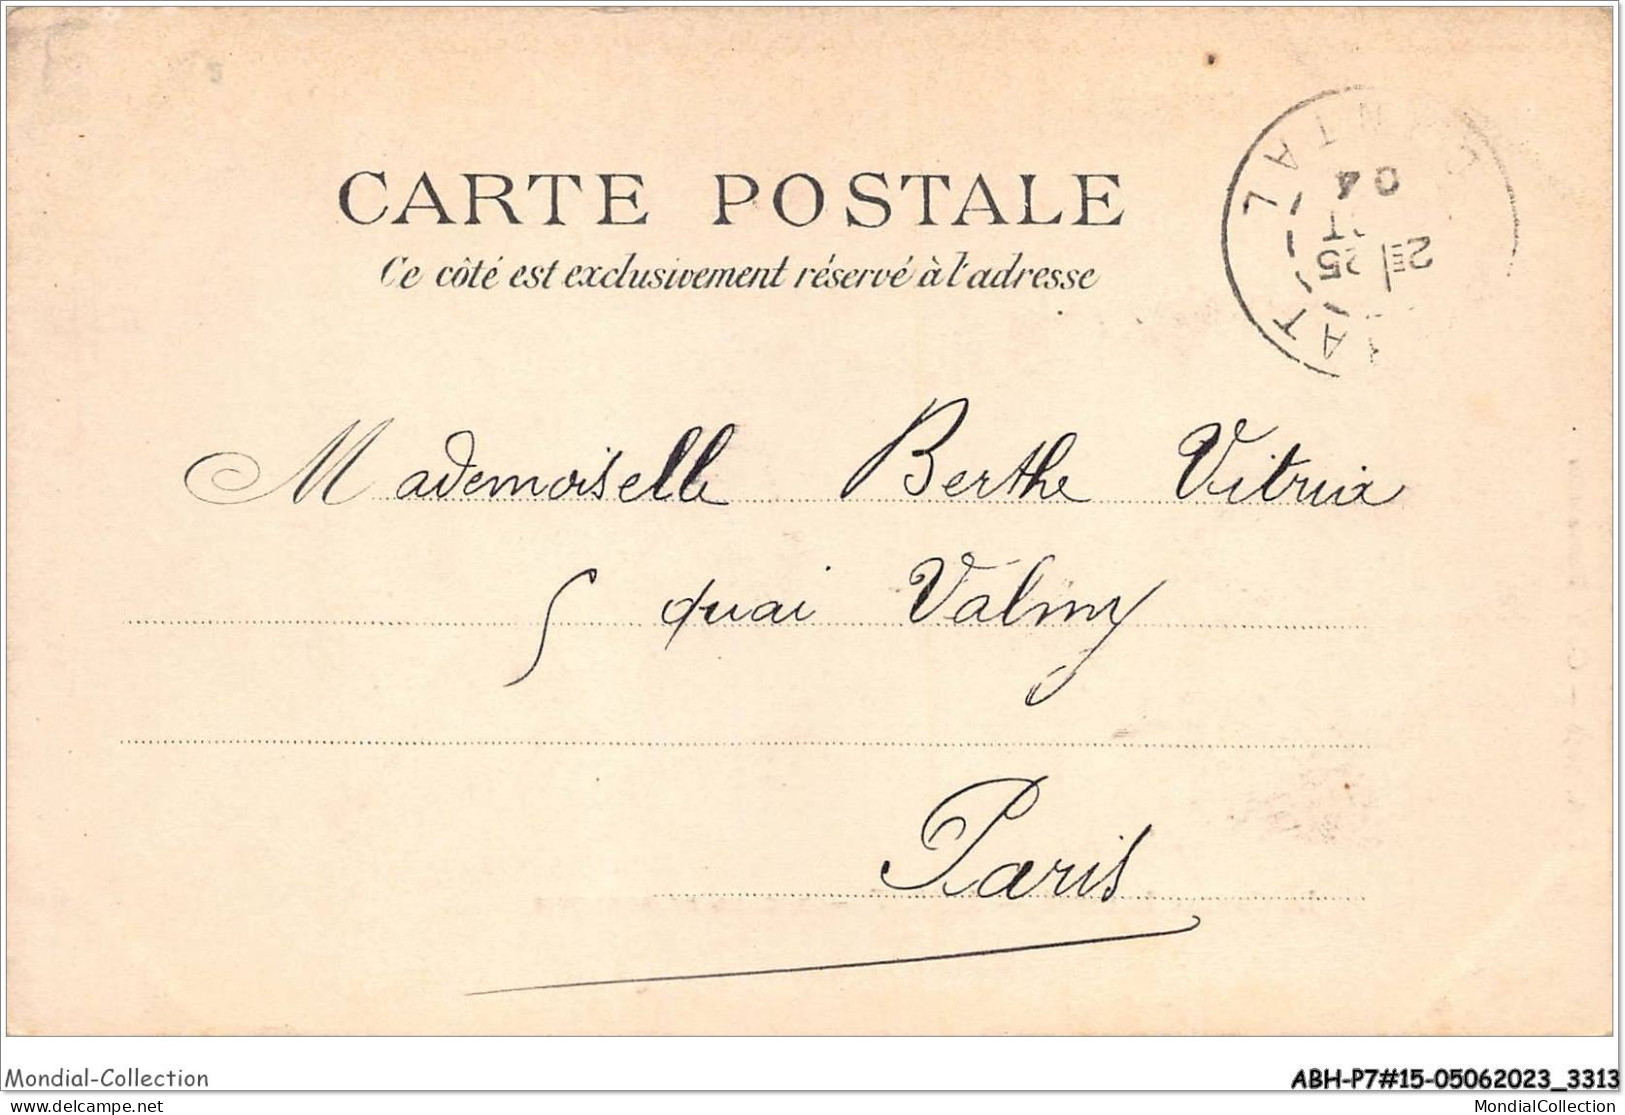 CARTE POSTALE
Ce côté est exclusivement réservé à l'adresse
CANTAL
04
25
2E
AT
Mademoiselle Berthe Vitrix
5 quai Valmy
Paris
Mondial-Collection
ABH-P7#15-05062023_3313
delcampe.net
MondialCollection